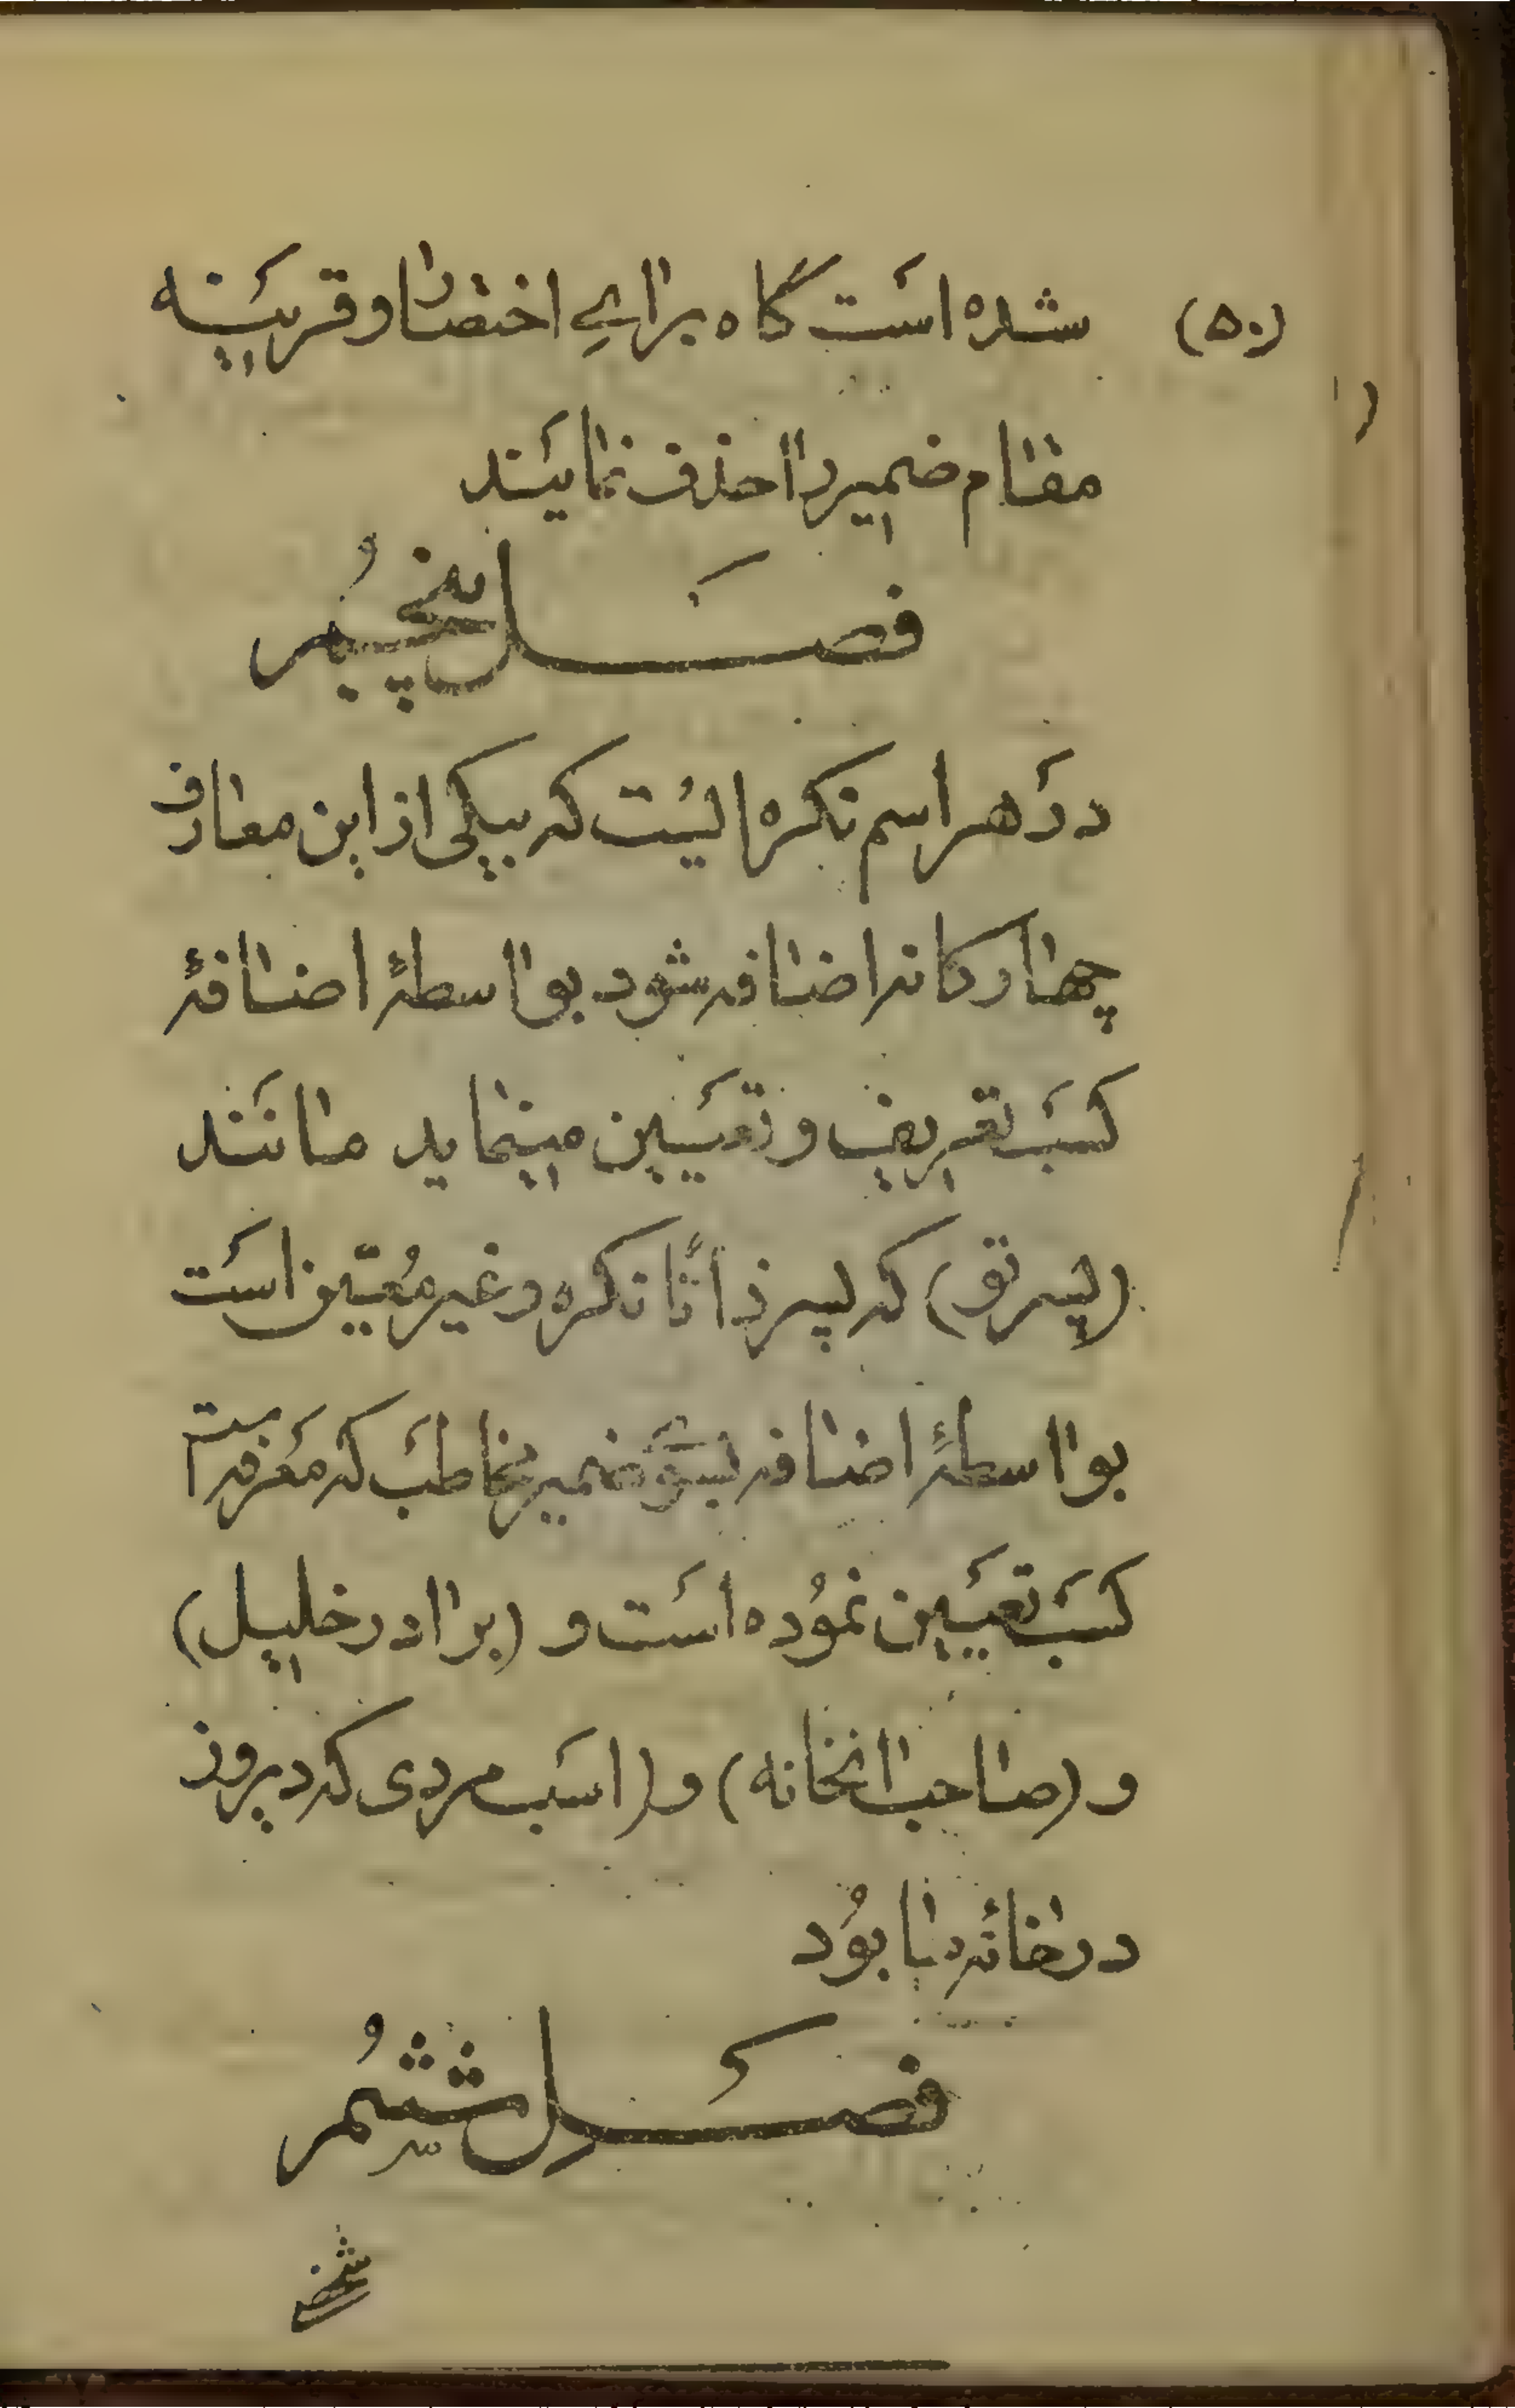 (۵۰) شده است گاه برای اختصار و قرینه
مقام ضمیر را حذف نمایند
فصل پنجم
در هر اسم نکره ایست که بیکی از این معارف
چهارکانه اضافه شود بواسطهٔ اضافهٔ
کسب تعریف و تعیین مینماید مانند
(پسر تو) که پسر ذاتًا نکره و غیر معیّن است
بواسطهٔ اضافه بسوی ضمیر مخاطب که معرفه است
کسب تعیین نموده است و (برادر خلیل)
و (صاحب انخانه) و (اسب مردی که دیروز
در خانه ما بود
فصل ششم
شخص